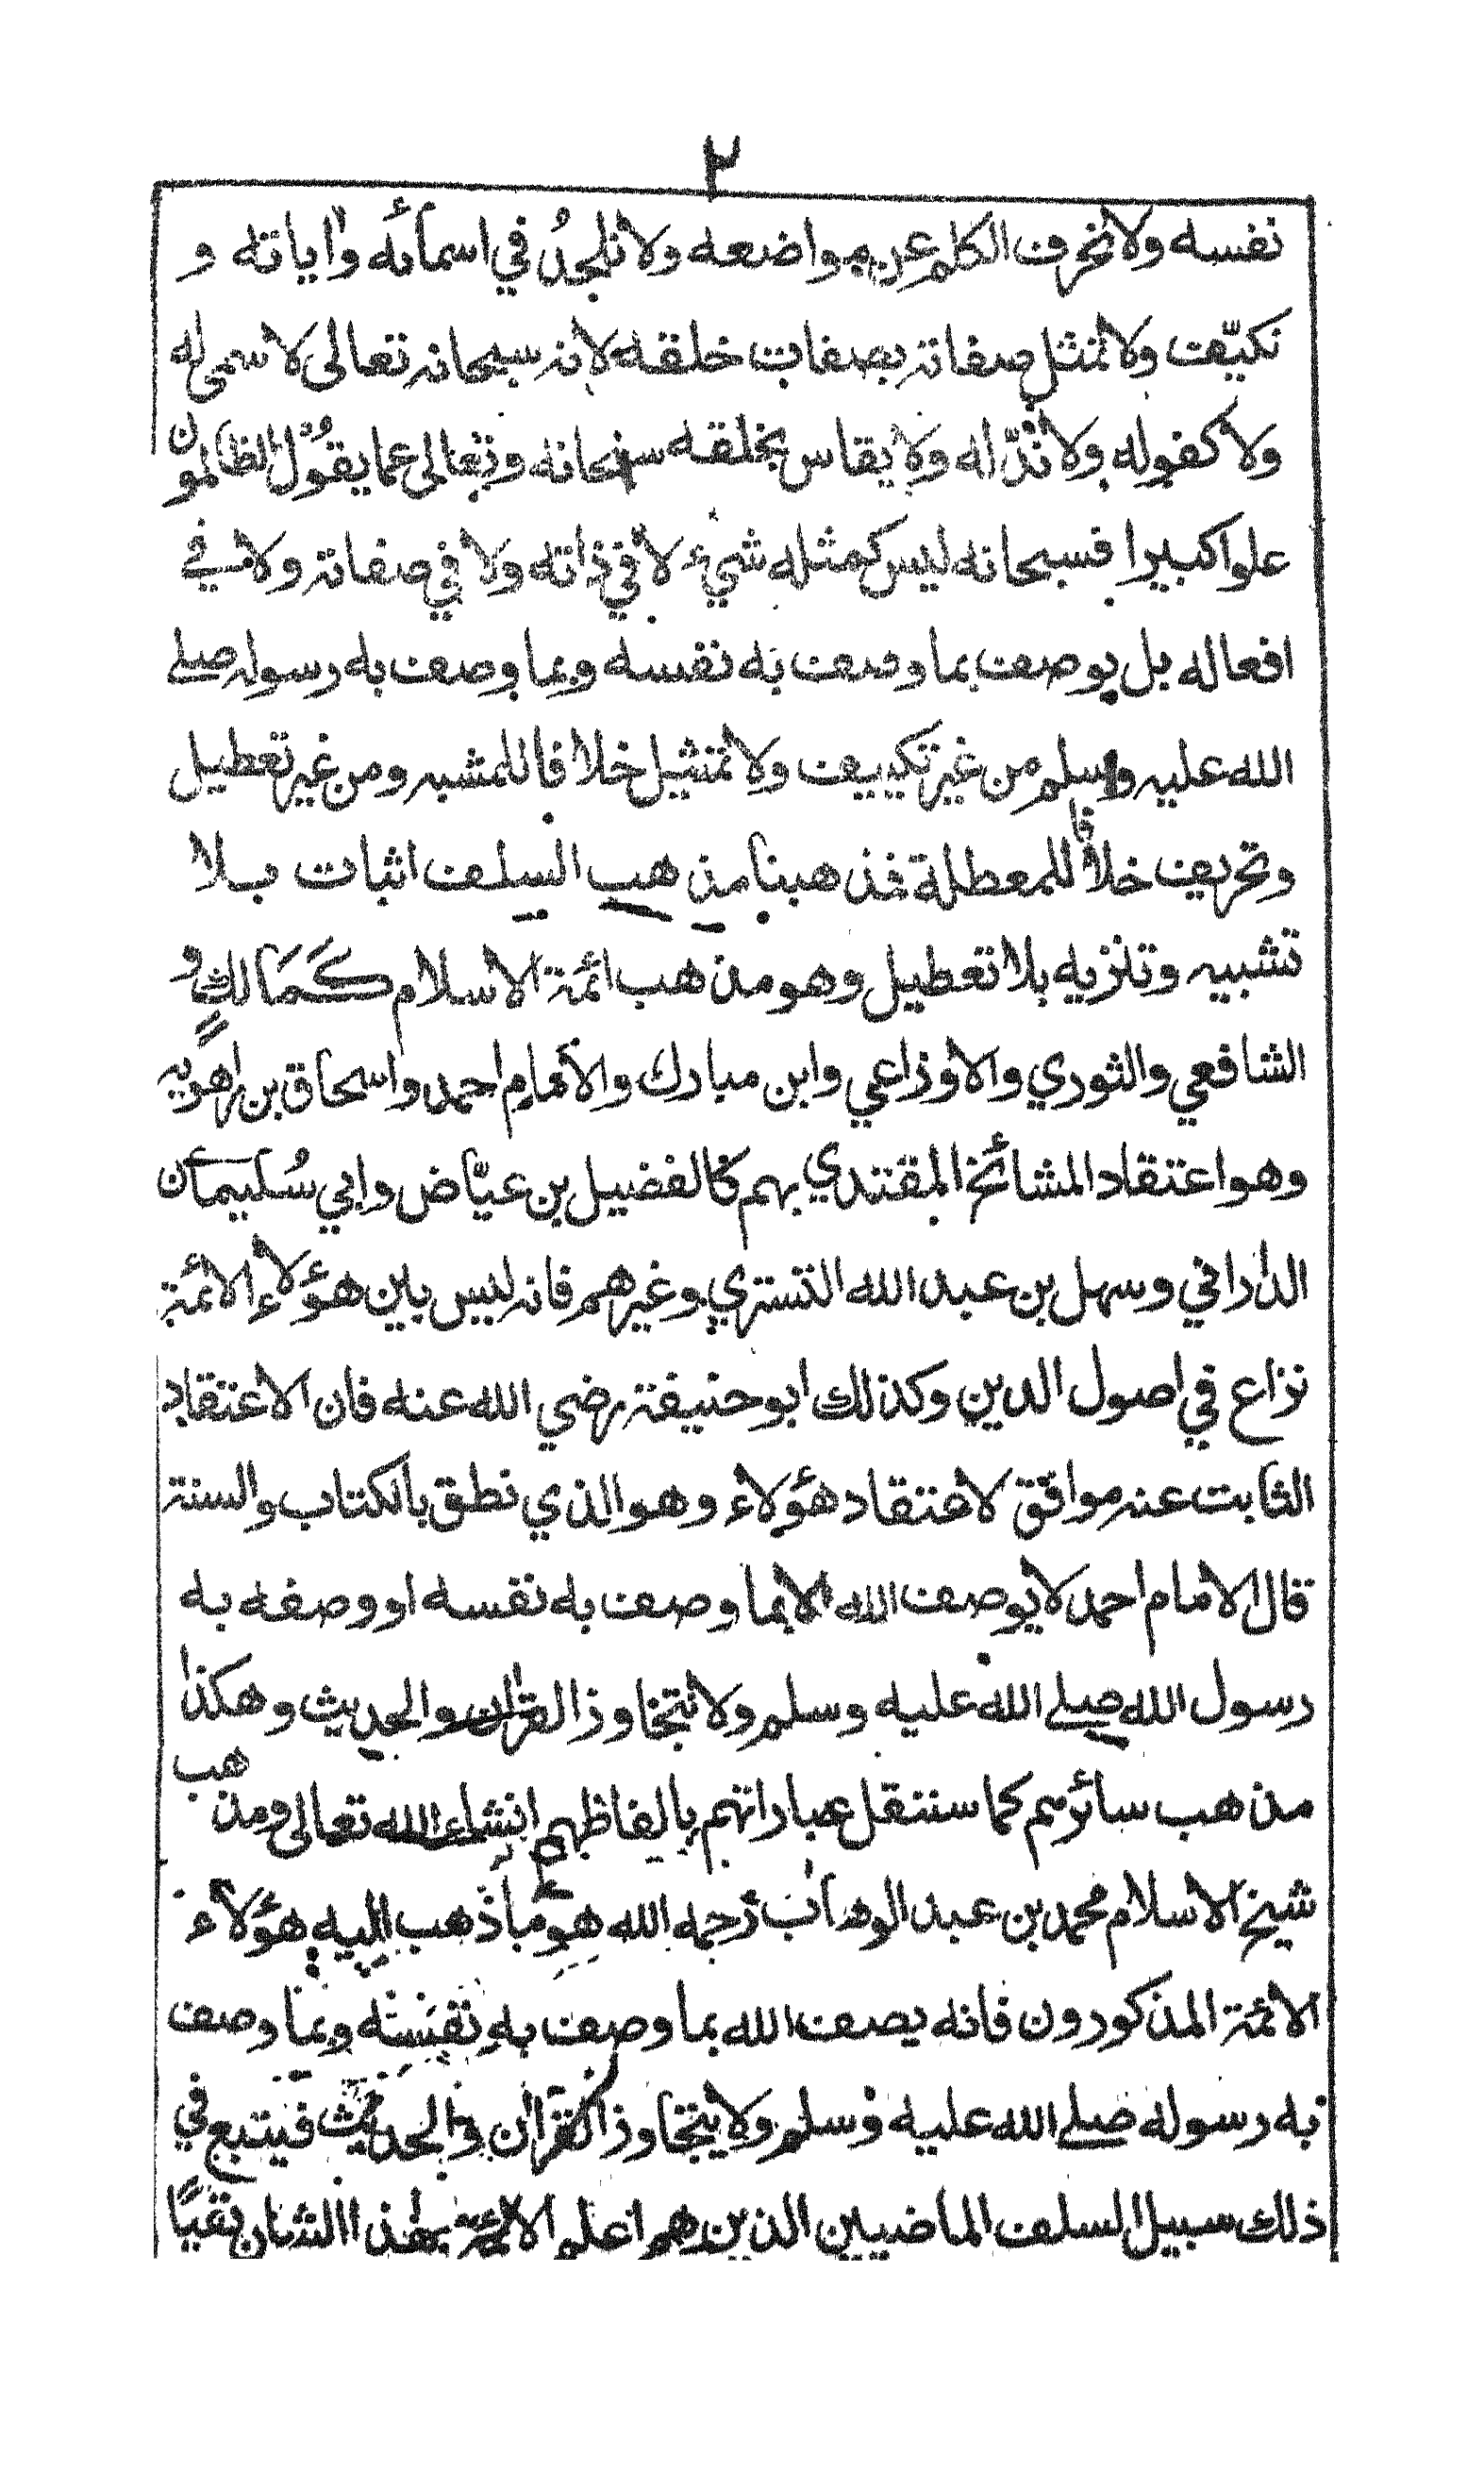 ٢
نفسه ولا نحرف الكلم عن مواضعه ولا نلحدُ في اسمائه واٰياته و
نكيّف ولا نمثل صفاته بصفات خلقه لانه سبحانه تعالى لا سمي له
ولا كفو له ولا ندّ له ولا يقاس بخلقه سبحانه وتعالى عما يقُوْل الظالمون
علوا كبيرا فسبحانه ليس كمثله شيء لا في ذاته ولا في صفاته ولا في
افعاله بل يوصف بما وصف به نفسه وبما وصف به رسوله صلے
الله عليه وسلم من غير تكييف ولا تمثيل خلافا للمشبه ومن غير تعطيل
وتحريف خلافا للمعطلة فمذهبنا مذهب السلف اثبات بلا
تشبيه وتنزيه بلا تعطيل وهو مذهب ائمة الاسلام كَمَالكٍ و
الشافعي والثوري والاوزاعي وابن مبارك والامام احمد واسحاق بن راهويه
وهو اعتقاد المشائخ المقتدي بهم كالفضيل بن عيّاض وابي سُليمان
الدٰراني وسهل بن عبد الله التستري وغيرهم فانه ليس بين هؤلاء الائمة
نزاع في اصول الدين وكذلك ابو حنيفة رضي الله عنه فان الاعتقاد
الثابت عنه موافق لاعتقاد هؤلاء وهو الذي نطق بالكتاب والسنة
قال الامام احمد لا يوصف الله الا بما وصف به نفسه او وصفه به
رسول الله صلے الله عليه وسلم ولا نتجاوز القراٰن والحديث وهكذا
مذهب سائرهم كما سننقل عباراتهم بالفاظهم انشاء الله تعالى ومذهب
شيخ الاسلام محمد بن عبد الوهاب رحمه الله هو ما ذهب اليه هؤلاء
الائمة المذكورون فانه يصف الله بما وصف به نفسه وبما وصف
به رسوله صلے الله عليه وسلم ولا يتجاوز القراٰن والحديث فيتبع في
ذلك سبيل السلف الماضيين الذين هم اعلم الائمة بهٰذا الشان نفيًا